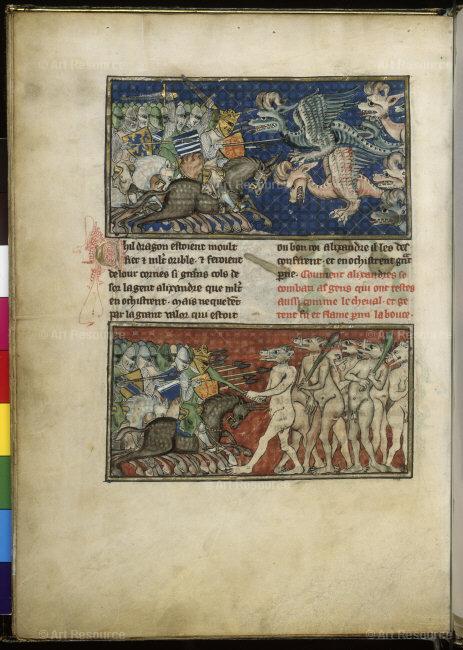 © Art Resource
© Art Resource
Chil dragon estoient moult
fier & mlt orible. & feroient
de lour cornes si grans cols de
sor la gent alixandre que mlt
en ochistrent. mais nequedēt
par la grant valor qui estoit
ou bon roi alixandre il les des
confirent. et en ochistrent
Coument alixandres se
combati as gens qui ont testes
aussi comme le cheval. et ge
tent fu et flame la bouce.
© Art Resource
© Art Resource